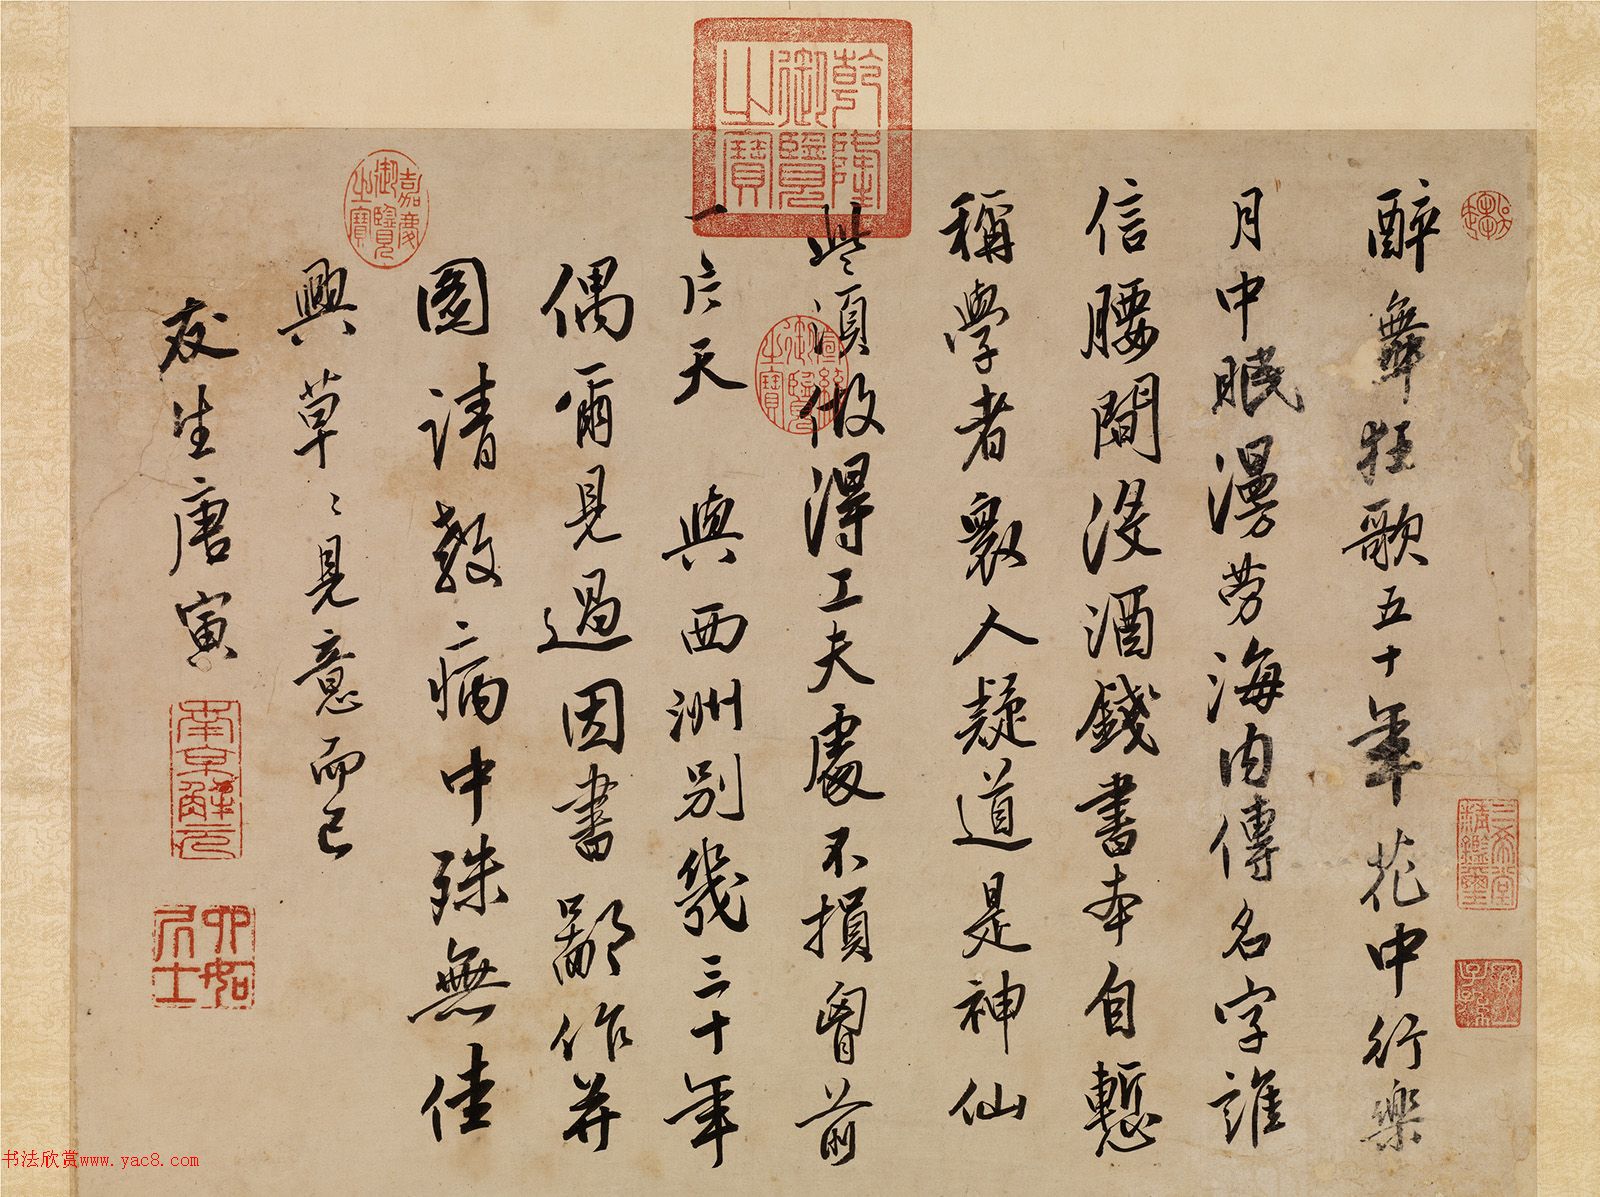 醉舞狂歌五十年花中行樂
月中眠漫勞海內傳名字誰
信腰間沒酒錢書本自慙
稱學者眾人疑道是神仙
些須做得工夫處不損胷前
一片天 與西洲別幾三十年
偶爾見過因書鄙作并
圖請教病中殊無佳
興草〻見意而已
友生唐寅
乾隆御覽之寶
嘉慶御覽之寶
宣統御覽之寶
三希堂精鑑璽
宜子孫
南京解元
六如居士
书法欣赏www.yac8.com